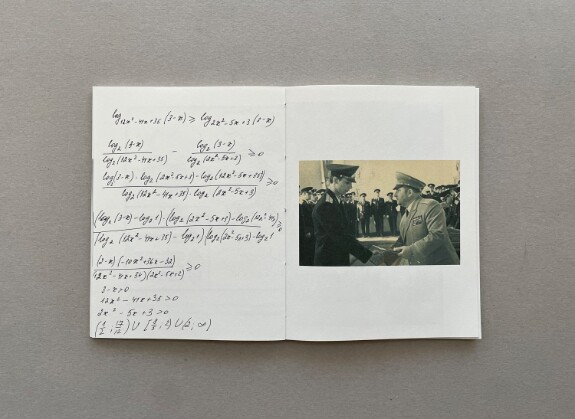 log_{12x²-41x+35} (3-x) ≥ log_{2x²-5x+3} (3-x)
log₂(3-x) / log₂(12x²-41x+35) - log₂(3-x) / log₂(2x²-5x+3) ≥ 0
log₂(3-x) · log₂(2x²-5x+3) - log₂(12x²-41x+35) / log₂(12x²-41x+35) · log₂(2x²-5x+3) ≥ 0
(log₂(3-x) - log₂1) · (log₂(2x²-5x+3) - log₂
(log₂(12x²-41x+35) - log₂1) (log₂(2x²-5x+3) - log₂1
(2-x)(-10x²+36x-32) / (12x²-41x+34)(2x²-5x+2) ≥ 0
3-x>0
12x² - 41x + 35 > 0
2x² - 5x + 3 > 0
(1/2; 17/12) ∪ [8/5; 2) ∪ (2, ∞)